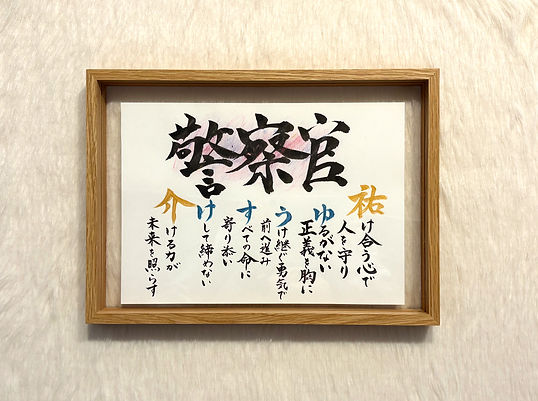 警察官
祐け合う心で
人を守り
ゆるがない
正義を胸に
うけ継ぐ勇気で
前へ進み
すべての命に
寄り添い
けして諦めない
介ける力が
未来を照らす